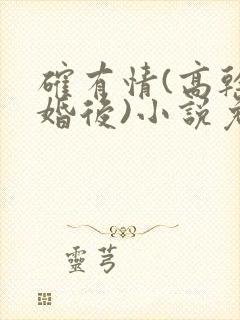 確有情(高幹
婚後)小說
靈芎